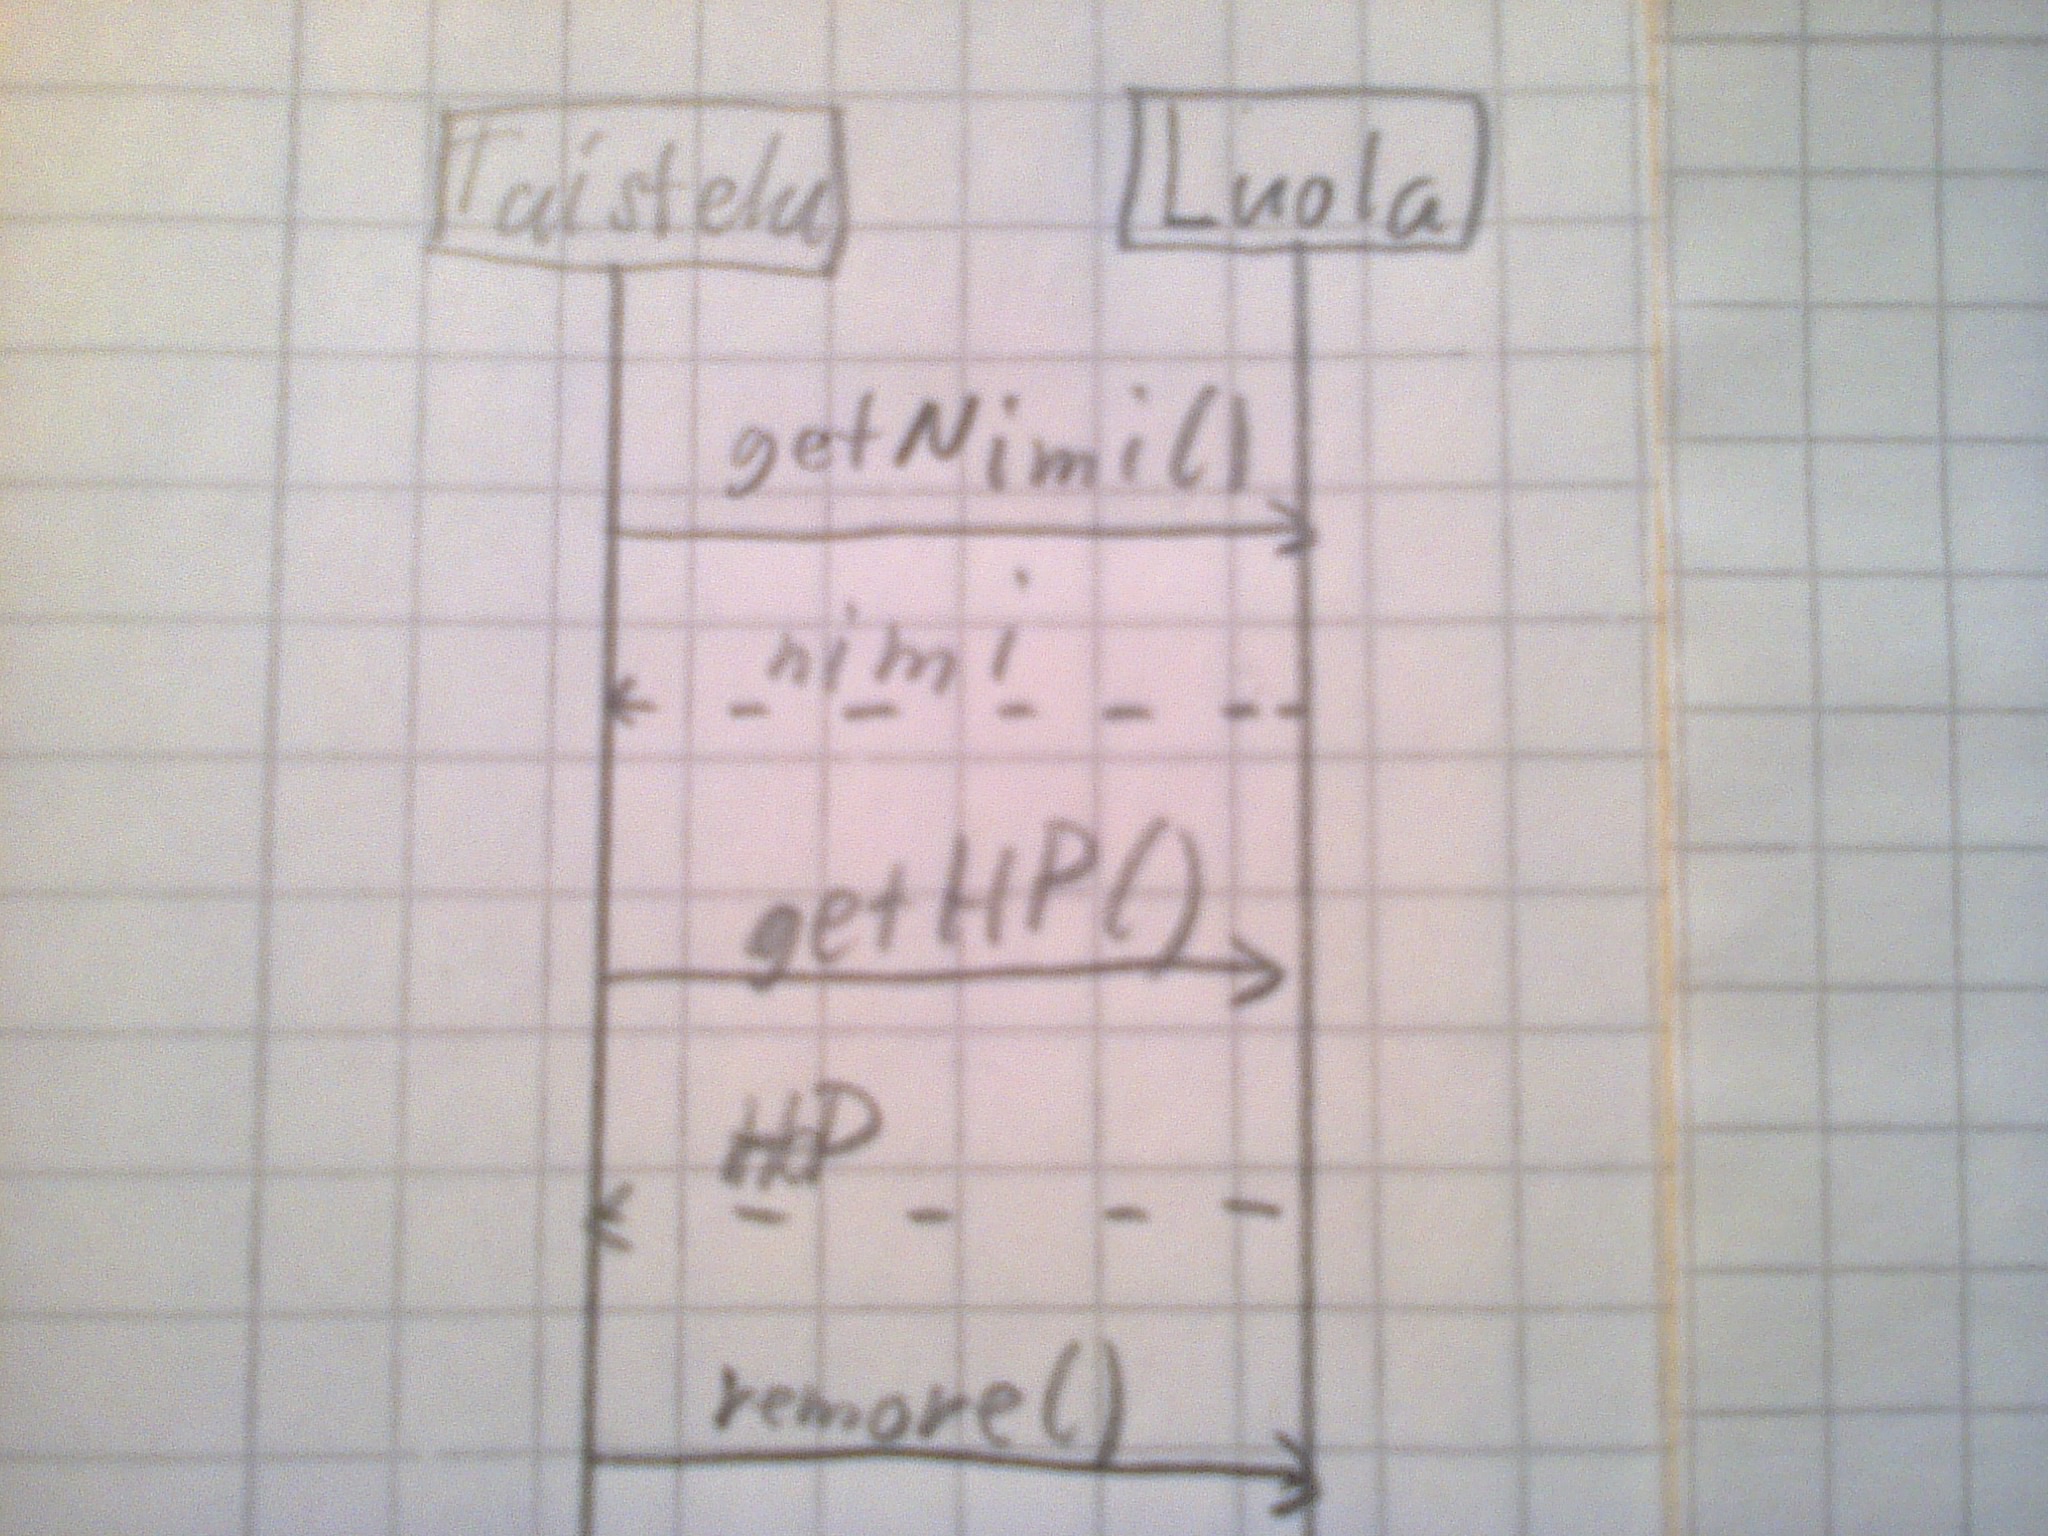 Taistelu Luola
getNimi()
nimi
getHP()
HP
remove()